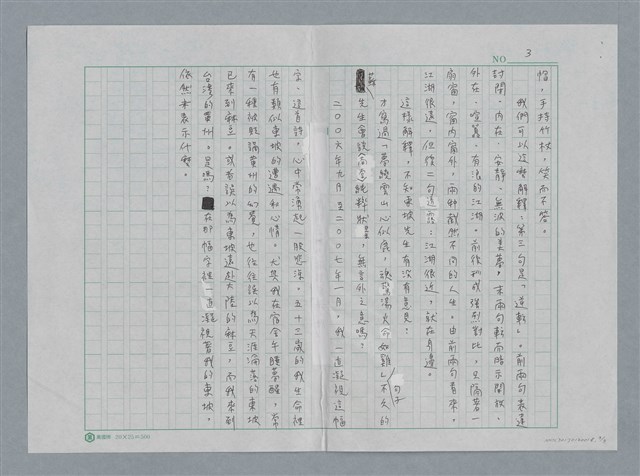 NO 3
帽,手持竹杖,笑而不答。
我們可以這麼解釋:第三句是「逆轉」。前兩句表達
封閉、內在、安靜、無波的美夢,末兩句轉而暗示開放、
外在、喧囂、有浪的江湖。前後形成強烈對比,只隔著一
扇窗,窗內窗外,兩種截然不同的人生。由前兩句看來,
江湖很遠,但後二句透露:江湖很近,就在身邊。
這樣解釋,不知東坡先生有沒有意見?
才寫過「夢繞雲山心似鹿,魂驚湯火命如雞」句子不久的
蘇先生會說 純粹 ,無言外之意嗎?
二〇〇六年九月至二〇〇七年一月,我一直凝視這幅
字、這首詩,心中常湧起一股悲涼。五十三歲的我生命裡
也有類似東坡的遭遇和心情。尤其我在宿舍午睡夢醒,常
有一種被貶謫黃州的幻覺,也往往誤以為天涯淪落的東坡
已來到林立。或者誤以為東坡遠赴大陸的林立,而我來到
台灣的黃州。是嗎?在那幅字裡一直凝視著我的東坡,
依然未表示什麼。